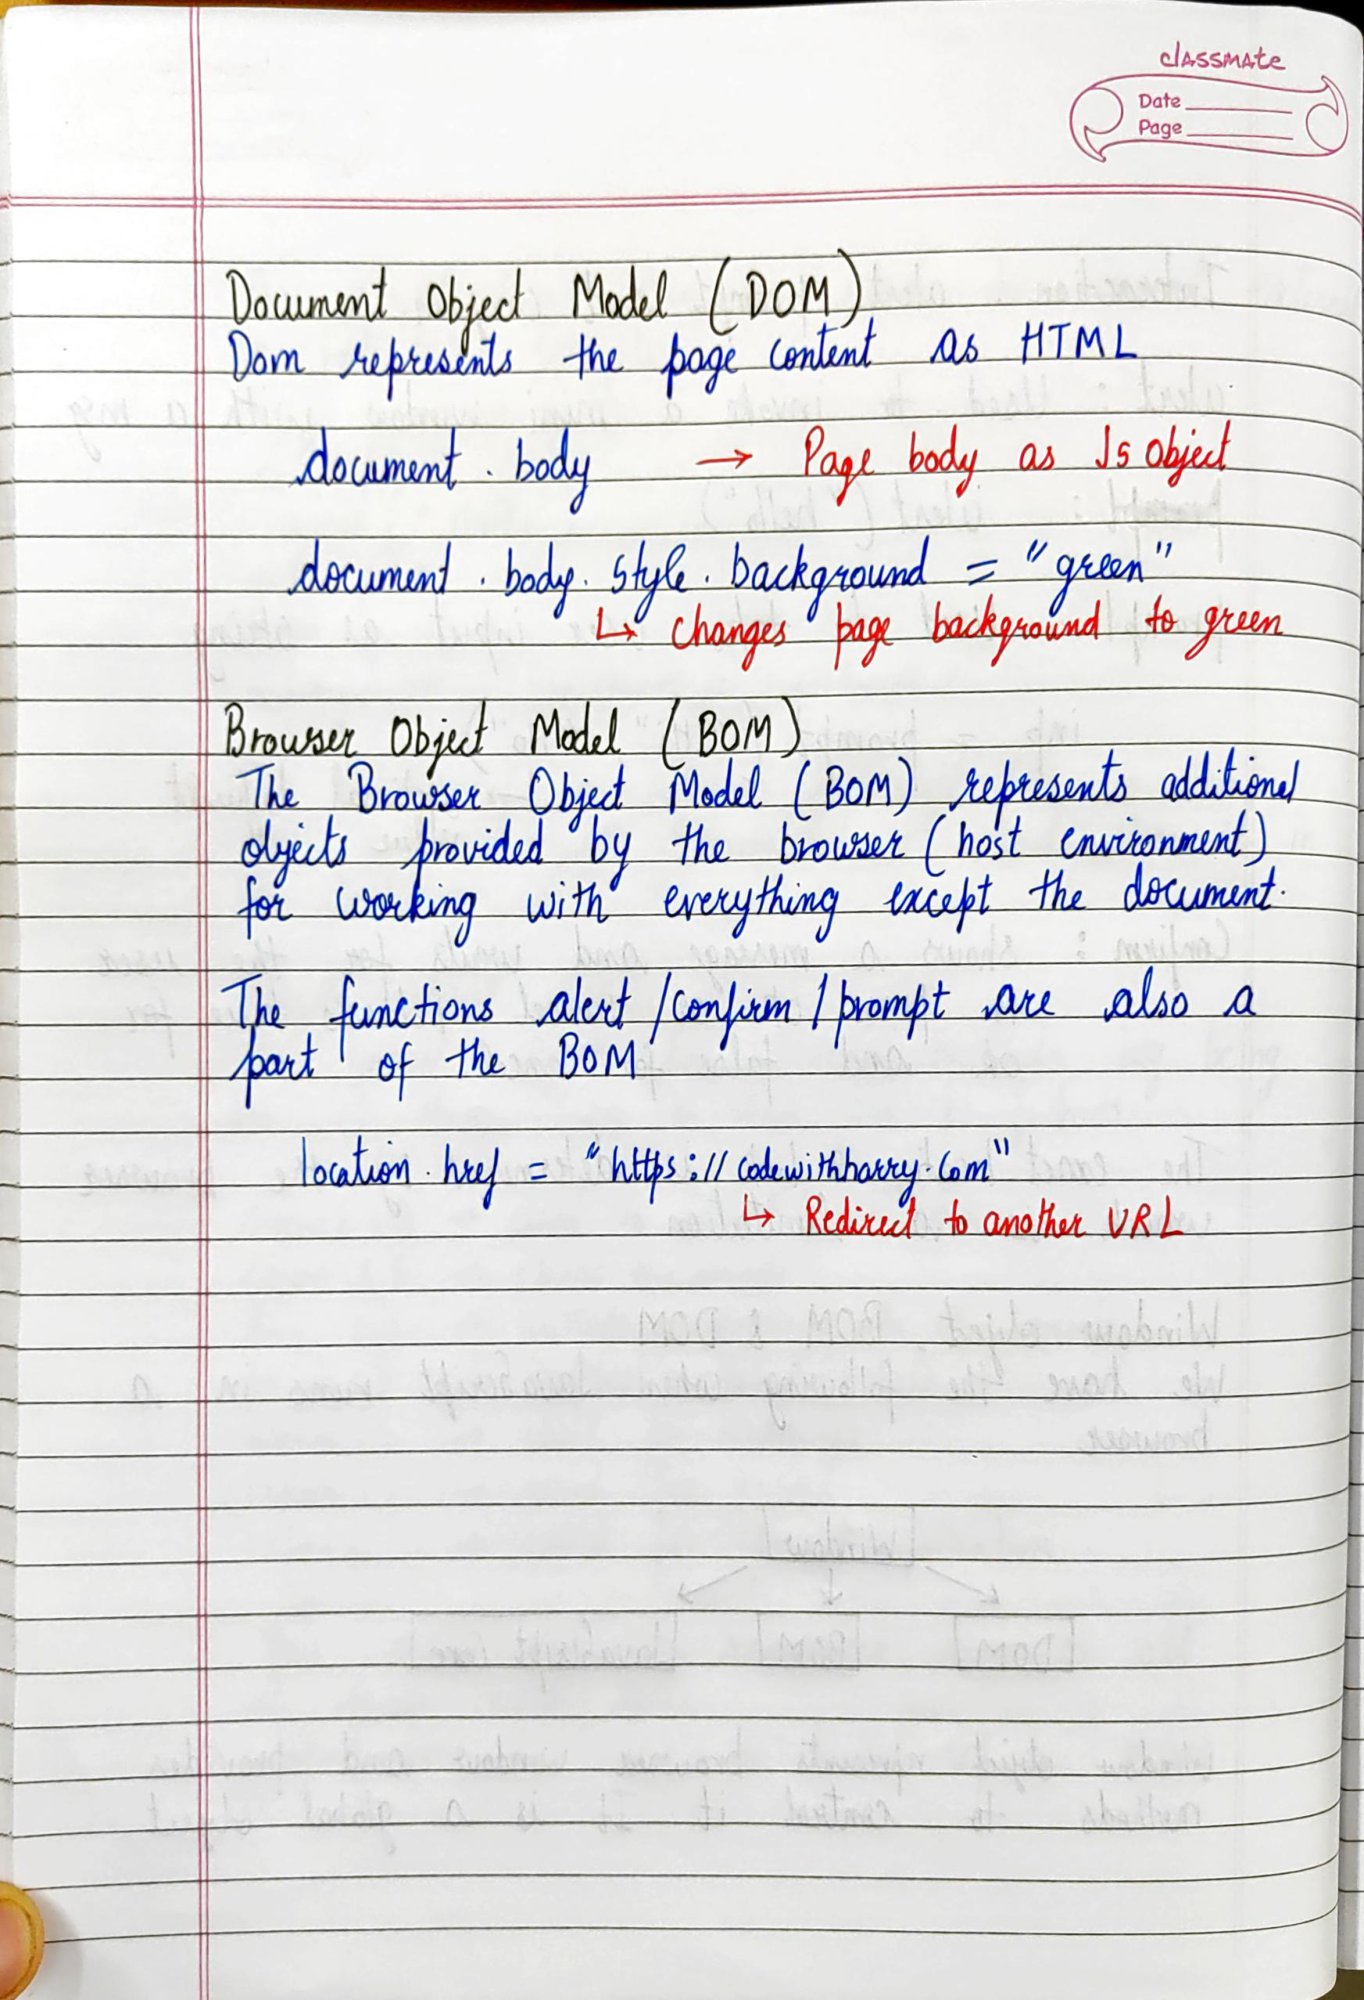 classmate
Date
Page
Document Object Model (DOM)
Dom represents the page content as HTML
document.body → Page body as Js Object
document.body.style.background = "green"
↳ changes page background to green
Browser Object Model (BOM)
The Browser Object Model (BOM) represents additional
objects provided by the browser (host environment)
for working with everything except the document.
The functions alert/confirm/prompt are also a
part of the BOM
location.href = "https://codewithharry.com"
↳ Redirect to another URL